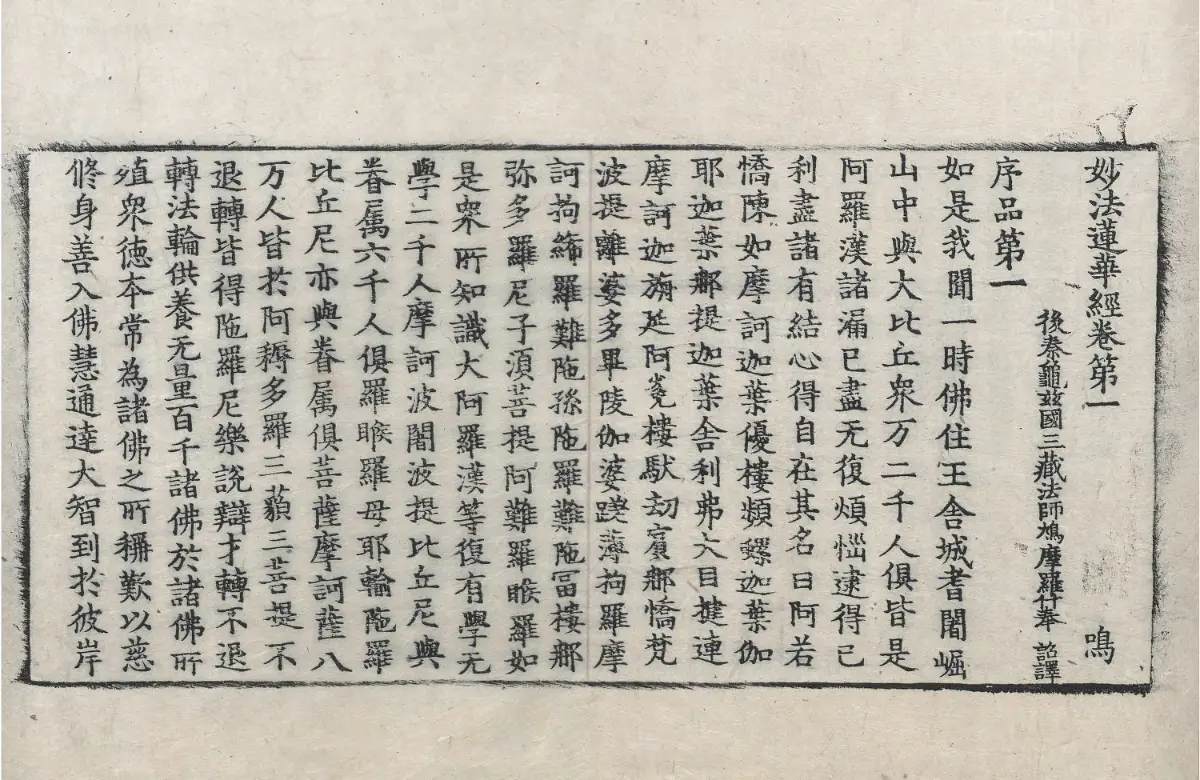 妙法蓮華經卷第一 鳴
後秦龜茲國三藏法師鳩摩羅什奉 詔譯
序品第一
如是我聞一時佛住王舍城耆闍崛
山中與大比丘衆万二千人俱皆是
阿羅漢諸漏已盡无復煩惱逮得己
利盡諸有結心得自在其名曰阿若
憍陳如摩訶迦葉優樓頻螺迦葉伽
耶迦葉那提迦葉舍利弗大目揵連
摩訶迦旃延阿㝹樓馱劫賓那憍梵
波提離婆多畢陵伽婆蹉薄拘羅摩
訶拘絺羅難陁孫陁羅難陁冨樓那
弥多羅尼子湏菩提阿難羅睺羅如
是衆所知識大阿羅漢等復有學无
學二千人摩訶波闍波提比丘尼與
眷属六千人俱羅睺羅母耶輸陁羅
比丘尼亦與眷属俱菩薩摩訶薩八
万人皆於阿耨多羅三藐三菩提不
退轉皆得陁羅尼樂說辯才轉不退
轉法輪供養无量百千諸佛於諸佛所
殖衆德夲常為諸佛之所稱歎以慈
修身善入佛慧通達大智到於彼岸